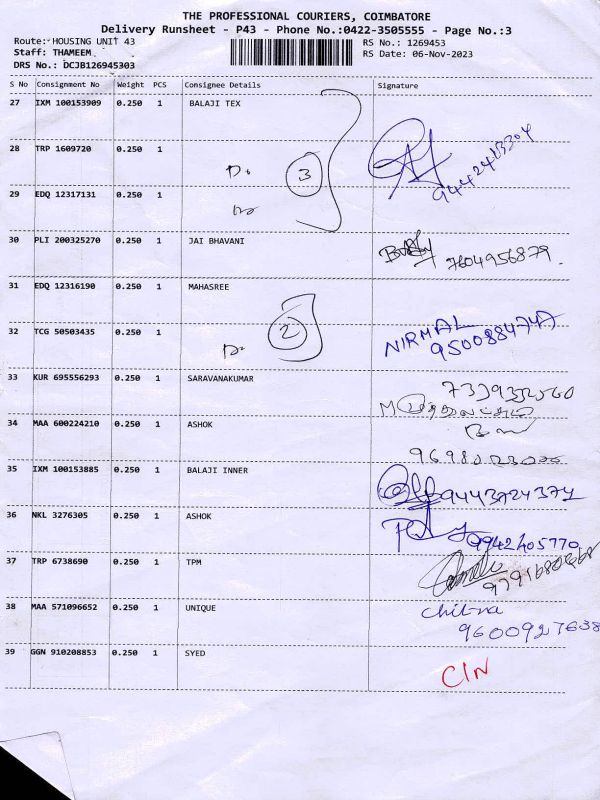 THE PROFESSIONAL COURIERS, COIMBATORE
Delivery Runsheet - P43 - Phone No.:0422-3505555 - Page No.:3
Route: HOUSING UNIT 43
RS No.: 1269453
Staff: THAMEEM
RS Date: 06-Nov-2023
DRS No.: DCJB126945303
S No Consignment No Weight PCS Consignee Details Signature
27 IXM 100153909 0.250 1 BALAJI TEX
28 TRP 1609720 0.250 1
3
29 EDQ 12317131 0.250 1
30 PLI 200325270 0.250 1 JAI BHAVANI 7604956879
31 EDQ 12316190 0.250 1 MAHASREE
32 TCG 50503435 0.250 1 2 NIRMAL
33 KUR 695556293 0.250 1 SARAVANAKUMAR
34 MAA 600224210 0.250 1 ASHOK
35 IXM 100153885 0.250 1 BALAJI INNER 9443724374
36 NKL 3276305 0.250 1 ASHOK 9942405770
37 TRP 6738690 0.250 1 TPM
38 MAA 571096652 0.250 1 UNIQUE Chitra
9600927638
39 GGN 910208853 0.250 1 SYED CIN